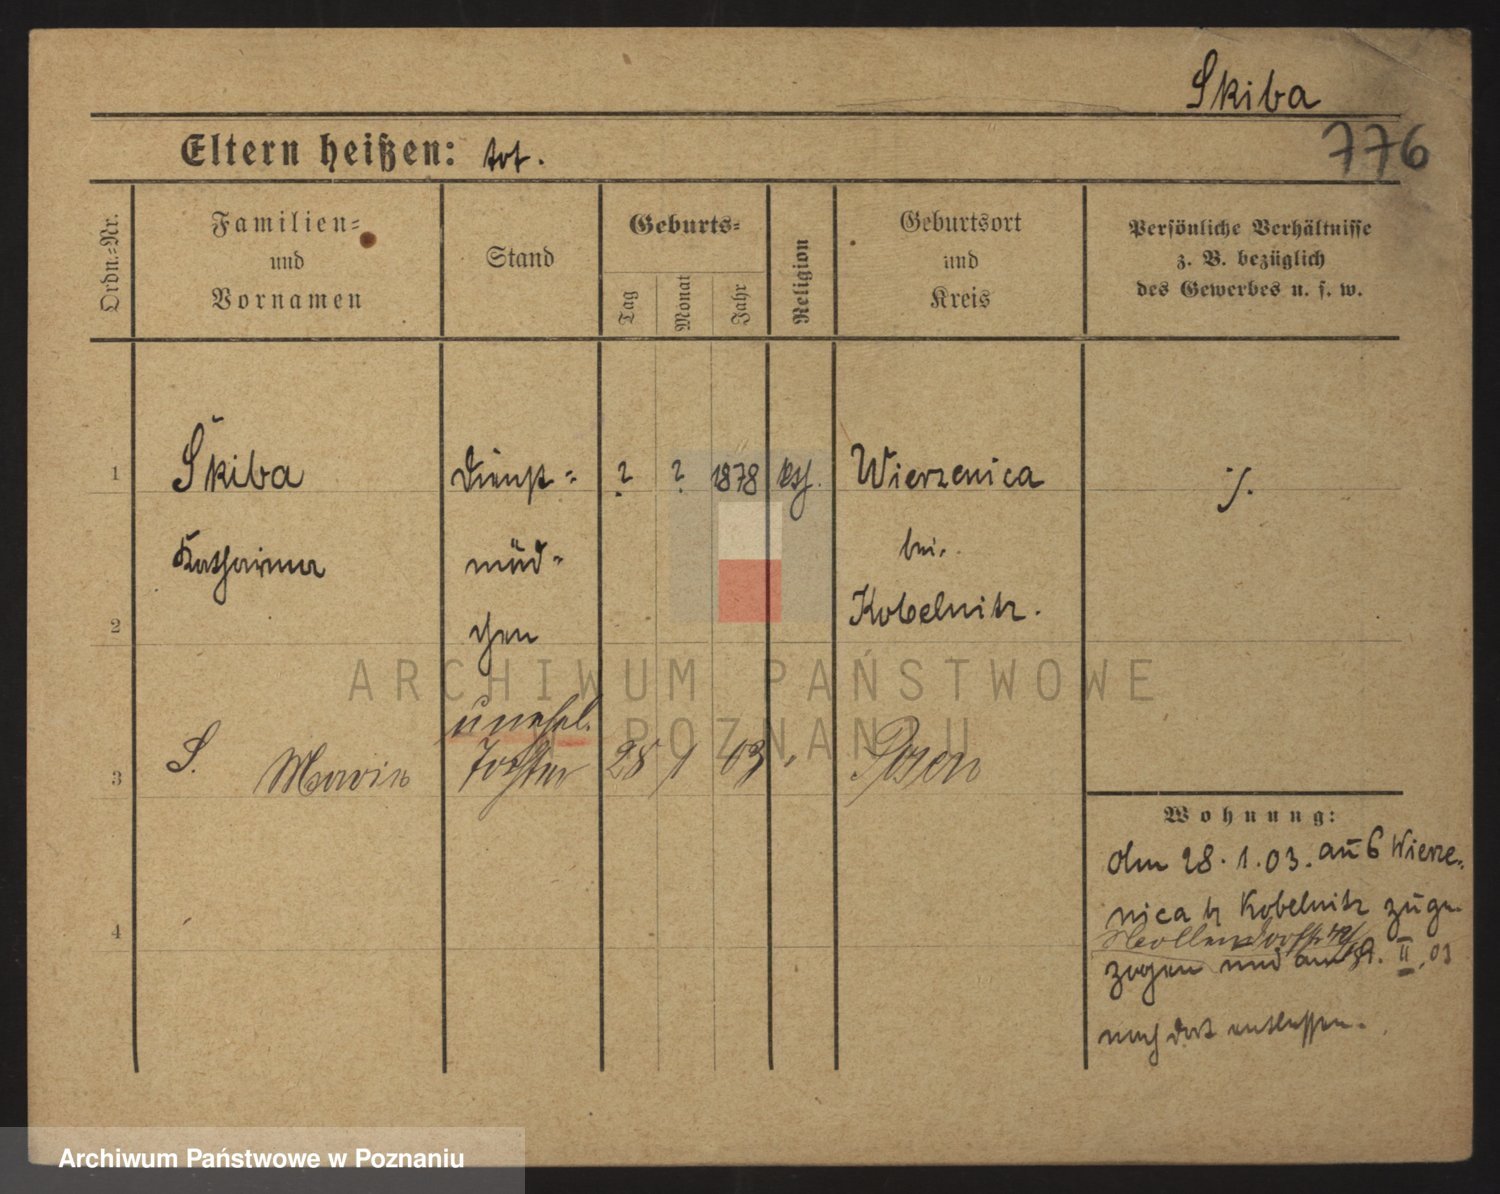 Skiba
776
Eltern heißen: tot.
Ordn.=Nr.
Familien=
und
Vornamen
Stand
Geburts=
Tag
Monat
Jahr
Religion
Geburtsort
und
Kreis
Persönliche Verhältnisse
z. B. bezüglich
des Gewerbes u. s. w.
1
Skiba
Dienst=
? ? 1878
kth.
Wierzenica
./.
Katharina
mäd=
bei
2
chen
Kobelnitz.
unehel.
3
S.
Maria
Tochter
28 1 03
Posen
Wohnung:
Am 28. 1. 03. aus Wierze=
nica b/ Kobelnitz zuge=
4
zogen und am 9. II. 03
nach dort entlassen.
ARCHIWUM PAŃSTWOWE
W POZNANIU
Archiwum Państwowe w Poznaniu